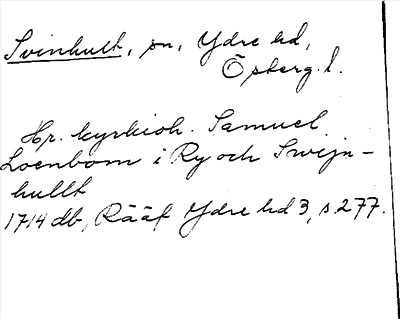 Svinhult, sn, Ydre hd,
Östergl.
Hr. kyrkioh. Samuel
Loenbom i Ry och Swijn-
hullt
1714 db, Rääf Ydre hd 3, s. 277.